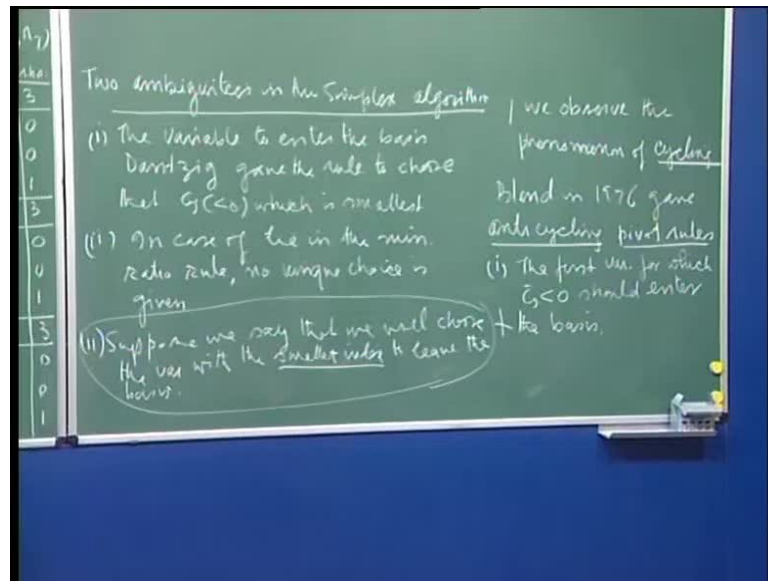 n7)
3
0
0
1
3
0
0
1
3
0
0
1
Two ambiguities in the Simplex algorithm
(i) The variable to enter the basis
Dantzig gave the rule to chose
that c̄j(<0) which is smallest
(ii) In case of tie in the min.
Ratio Rule, no unique choice is
given
(ii) Suppose we say that we will chose
the var with the smallest index to leave the
basis.
we observe the
phenomenon of cycling
Bland in 1976 gave
anticycling pivot rules
(i) The first var. for which
c̄j<0 should enter
the basis.